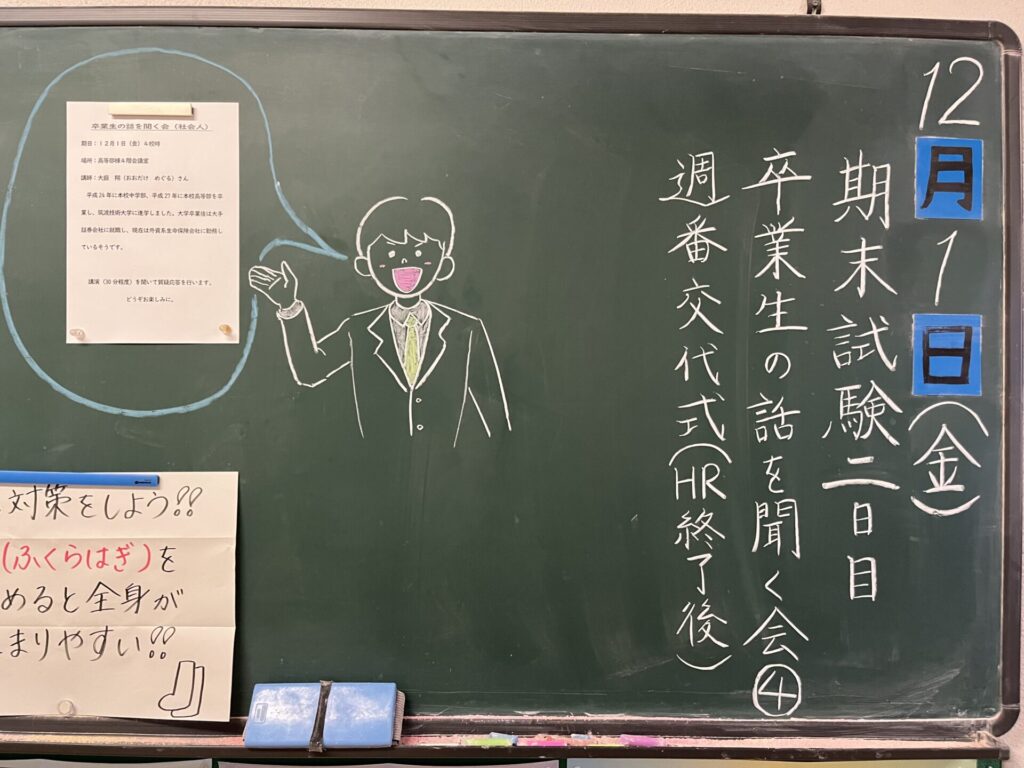 12月1日(金)
期末試験二日目
卒業生の話を聞く会④
週番交代式(HR終了後)
卒業生の話を聞く会(社会人)
期日:12月1日(金)4校時
場所:高等部棟4階会議室
講師:大嶽 翔(おおだけ めぐる)さん
平成24年に本校中学部、平成27年に本校高等部を卒
業し、筑波技術大学に進学しました。大学卒業後は大手
証券会社に就職し、現在は外資系生命保険会社に勤務し
ているそうです。
講演(30分程度)を聞いて質疑応答を行います。
どうぞお楽しみに。
対策をしよう!!
(ふくらはぎ)を
めると全身が
まりやすい!!